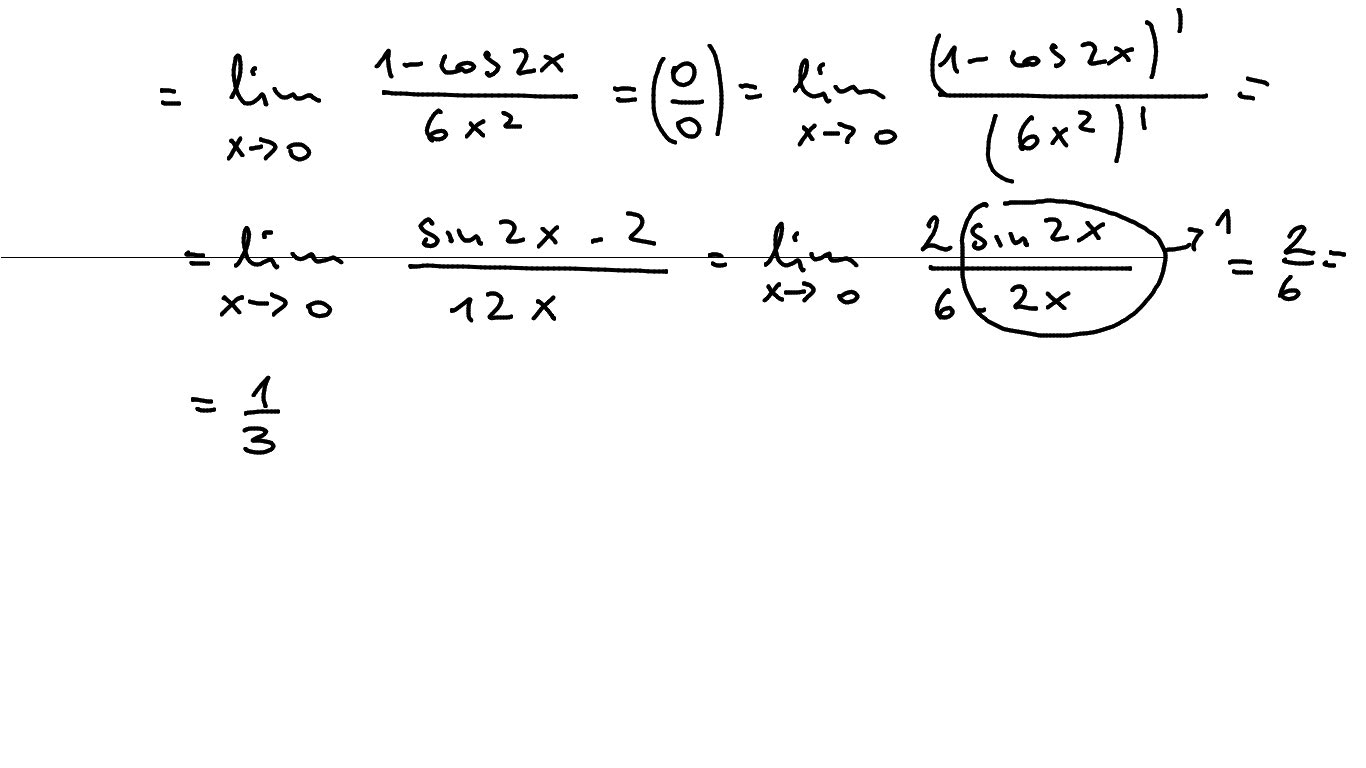 = lim_{x→0} \frac{1 - cos 2x}{6x^2} = (\frac{0}{0}) = lim_{x→0} \frac{(1 - cos 2x)'}{(6x^2)'} =
= lim_{x→0} \frac{sin 2x · 2}{12x} = lim_{x→0} \frac{2 sin 2x}{6 · 2x} → 1 = \frac{2}{6} =
= \frac{1}{3}